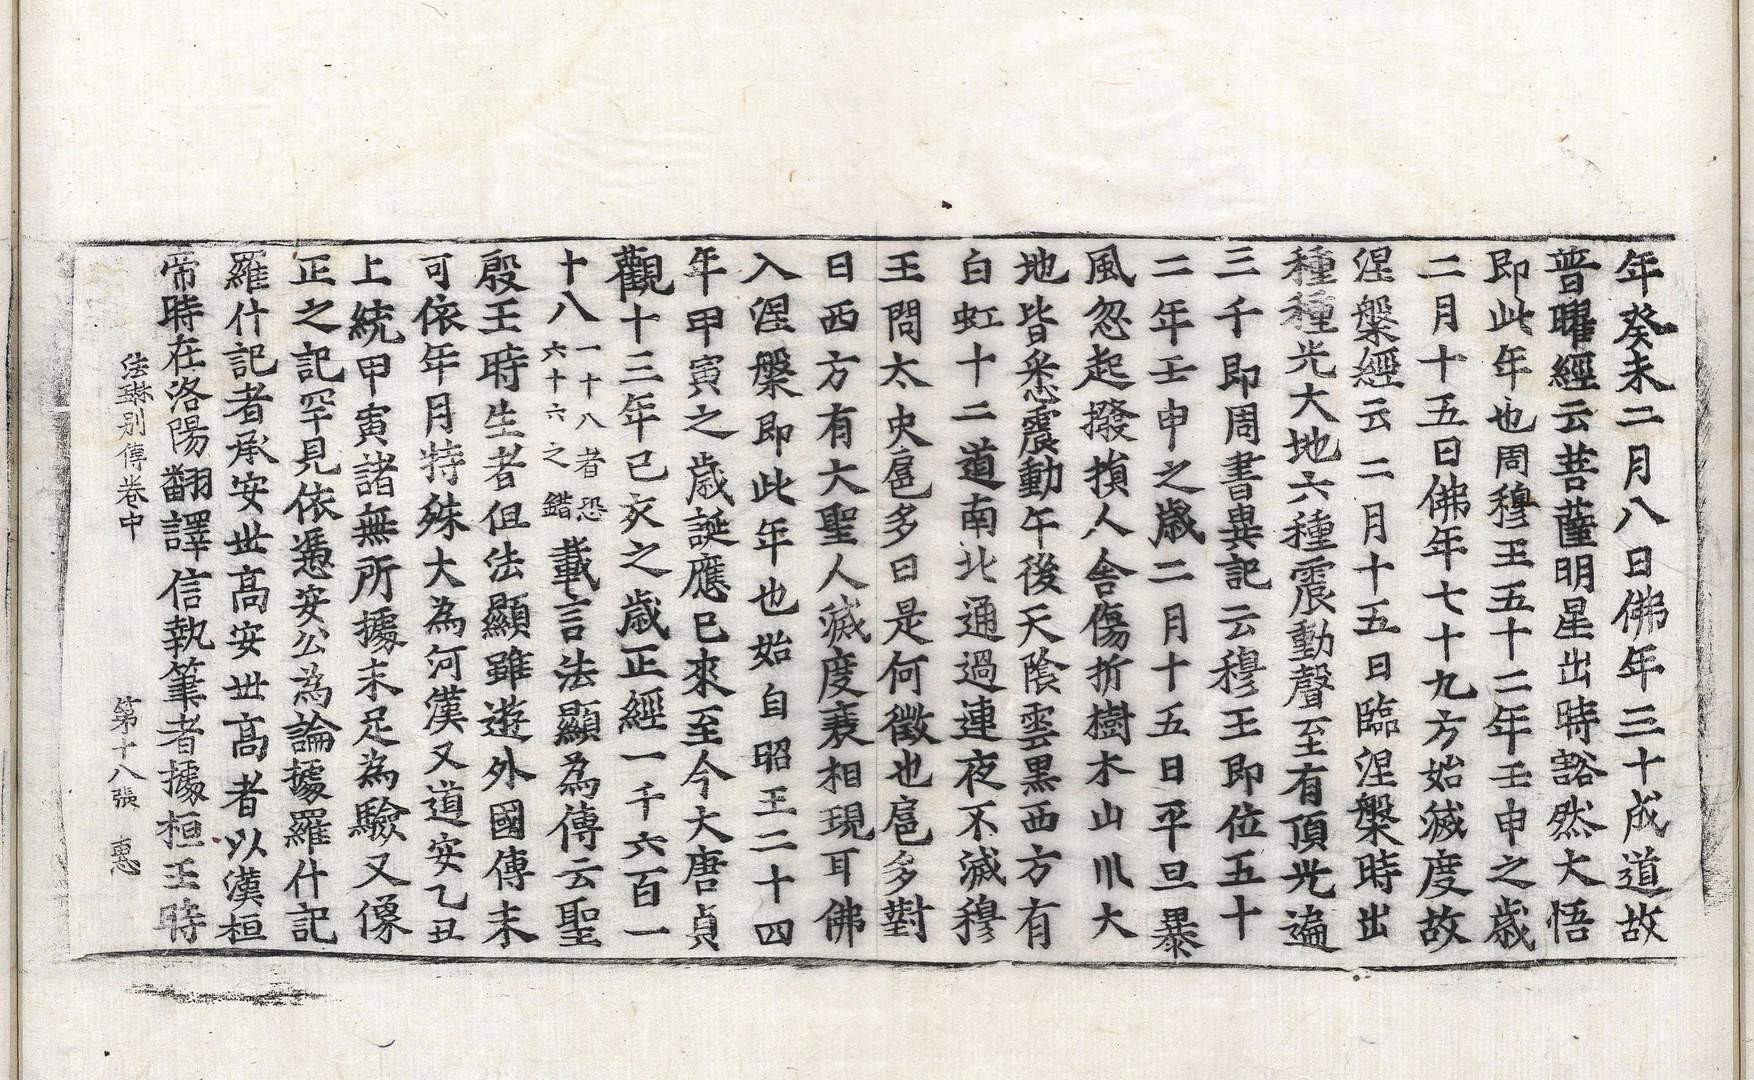 年癸未二月八日佛年三十成道故
普曜經云菩薩明星出時豁然大悟
即此年也周穆王五十二年壬申之歲
二月十五日佛年七十九方始滅度故
涅槃經云二月十五日臨涅槃時出
種種光大地六種震動聲至有頂光遍
三千即周書異記云穆王即位五十
二年壬申之歲二月十五日平旦暴
風忽起撥損人舍傷折樹木山川大
地皆悉震動午後天陰雲黑西方有
白虹十二道南北通過連夜不滅穆
王問太史扈多曰是何徵也扈多對
曰西方有大聖人滅度衰相現耳佛
入涅槃即此年也始自昭王二十四
年甲寅之歲誕應已來至今大唐貞
觀十三年己亥之歲正經一千六百一
十八一十八者恐六十六之錯載言法顯為傳云聖
殷王時生者但法顯雖遊外國傳未
可依年月特殊大為河漢又道安乙丑
上統甲寅諸無所據未足為驗又像
正之記罕見依憑安公為論據羅什記
羅什記者承安世高安世高者以漢桓
帝時在洛陽翻譯信執筆者據桓王時
法琳別傳卷中　第十八張　惠